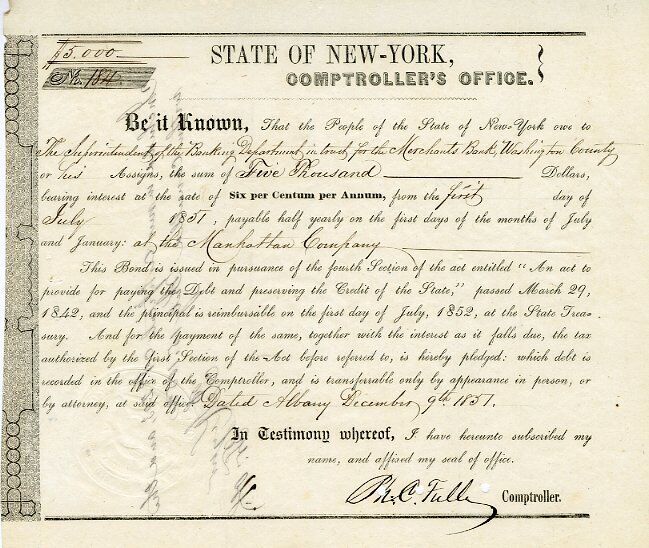 $5.000
No. 184
STATE OF NEW-YORK,
COMPTROLLER'S OFFICE.
Be it Known, That the People of the State of New-York owe to
The Superintendent of the Banking Department in trust for the Merchants Bank, Washington County
or his Assigns, the sum of Five Thousand Dollars,
bearing interest at the rate of Six per Centum per Annum, from the first day of
July 1851, payable half yearly on the first days of the months of July
and January: at the Manhattan Company
This Bond is issued in pursuance of the fourth Section of the act entitled "An act to
provide for paying the Debt and preserving the Credit of the State," passed March 29,
1842; and the principal is reimbursible on the first day of July, 1852, at the State Treas-
sury. And for the payment of the same, together with the interest as it falls due, the tax
authorized by the first Section of the Act before referred to, is hereby pledged: which debt is
recorded in the office of the Comptroller, and is transferrable only by appearance in person, or
by attorney, at said office. Dated Albany December 9th 1851.
In Testimony whereof, I have hereunto subscribed my
name, and affixed my seal of office.
Ph. C. Fuller Comptroller.